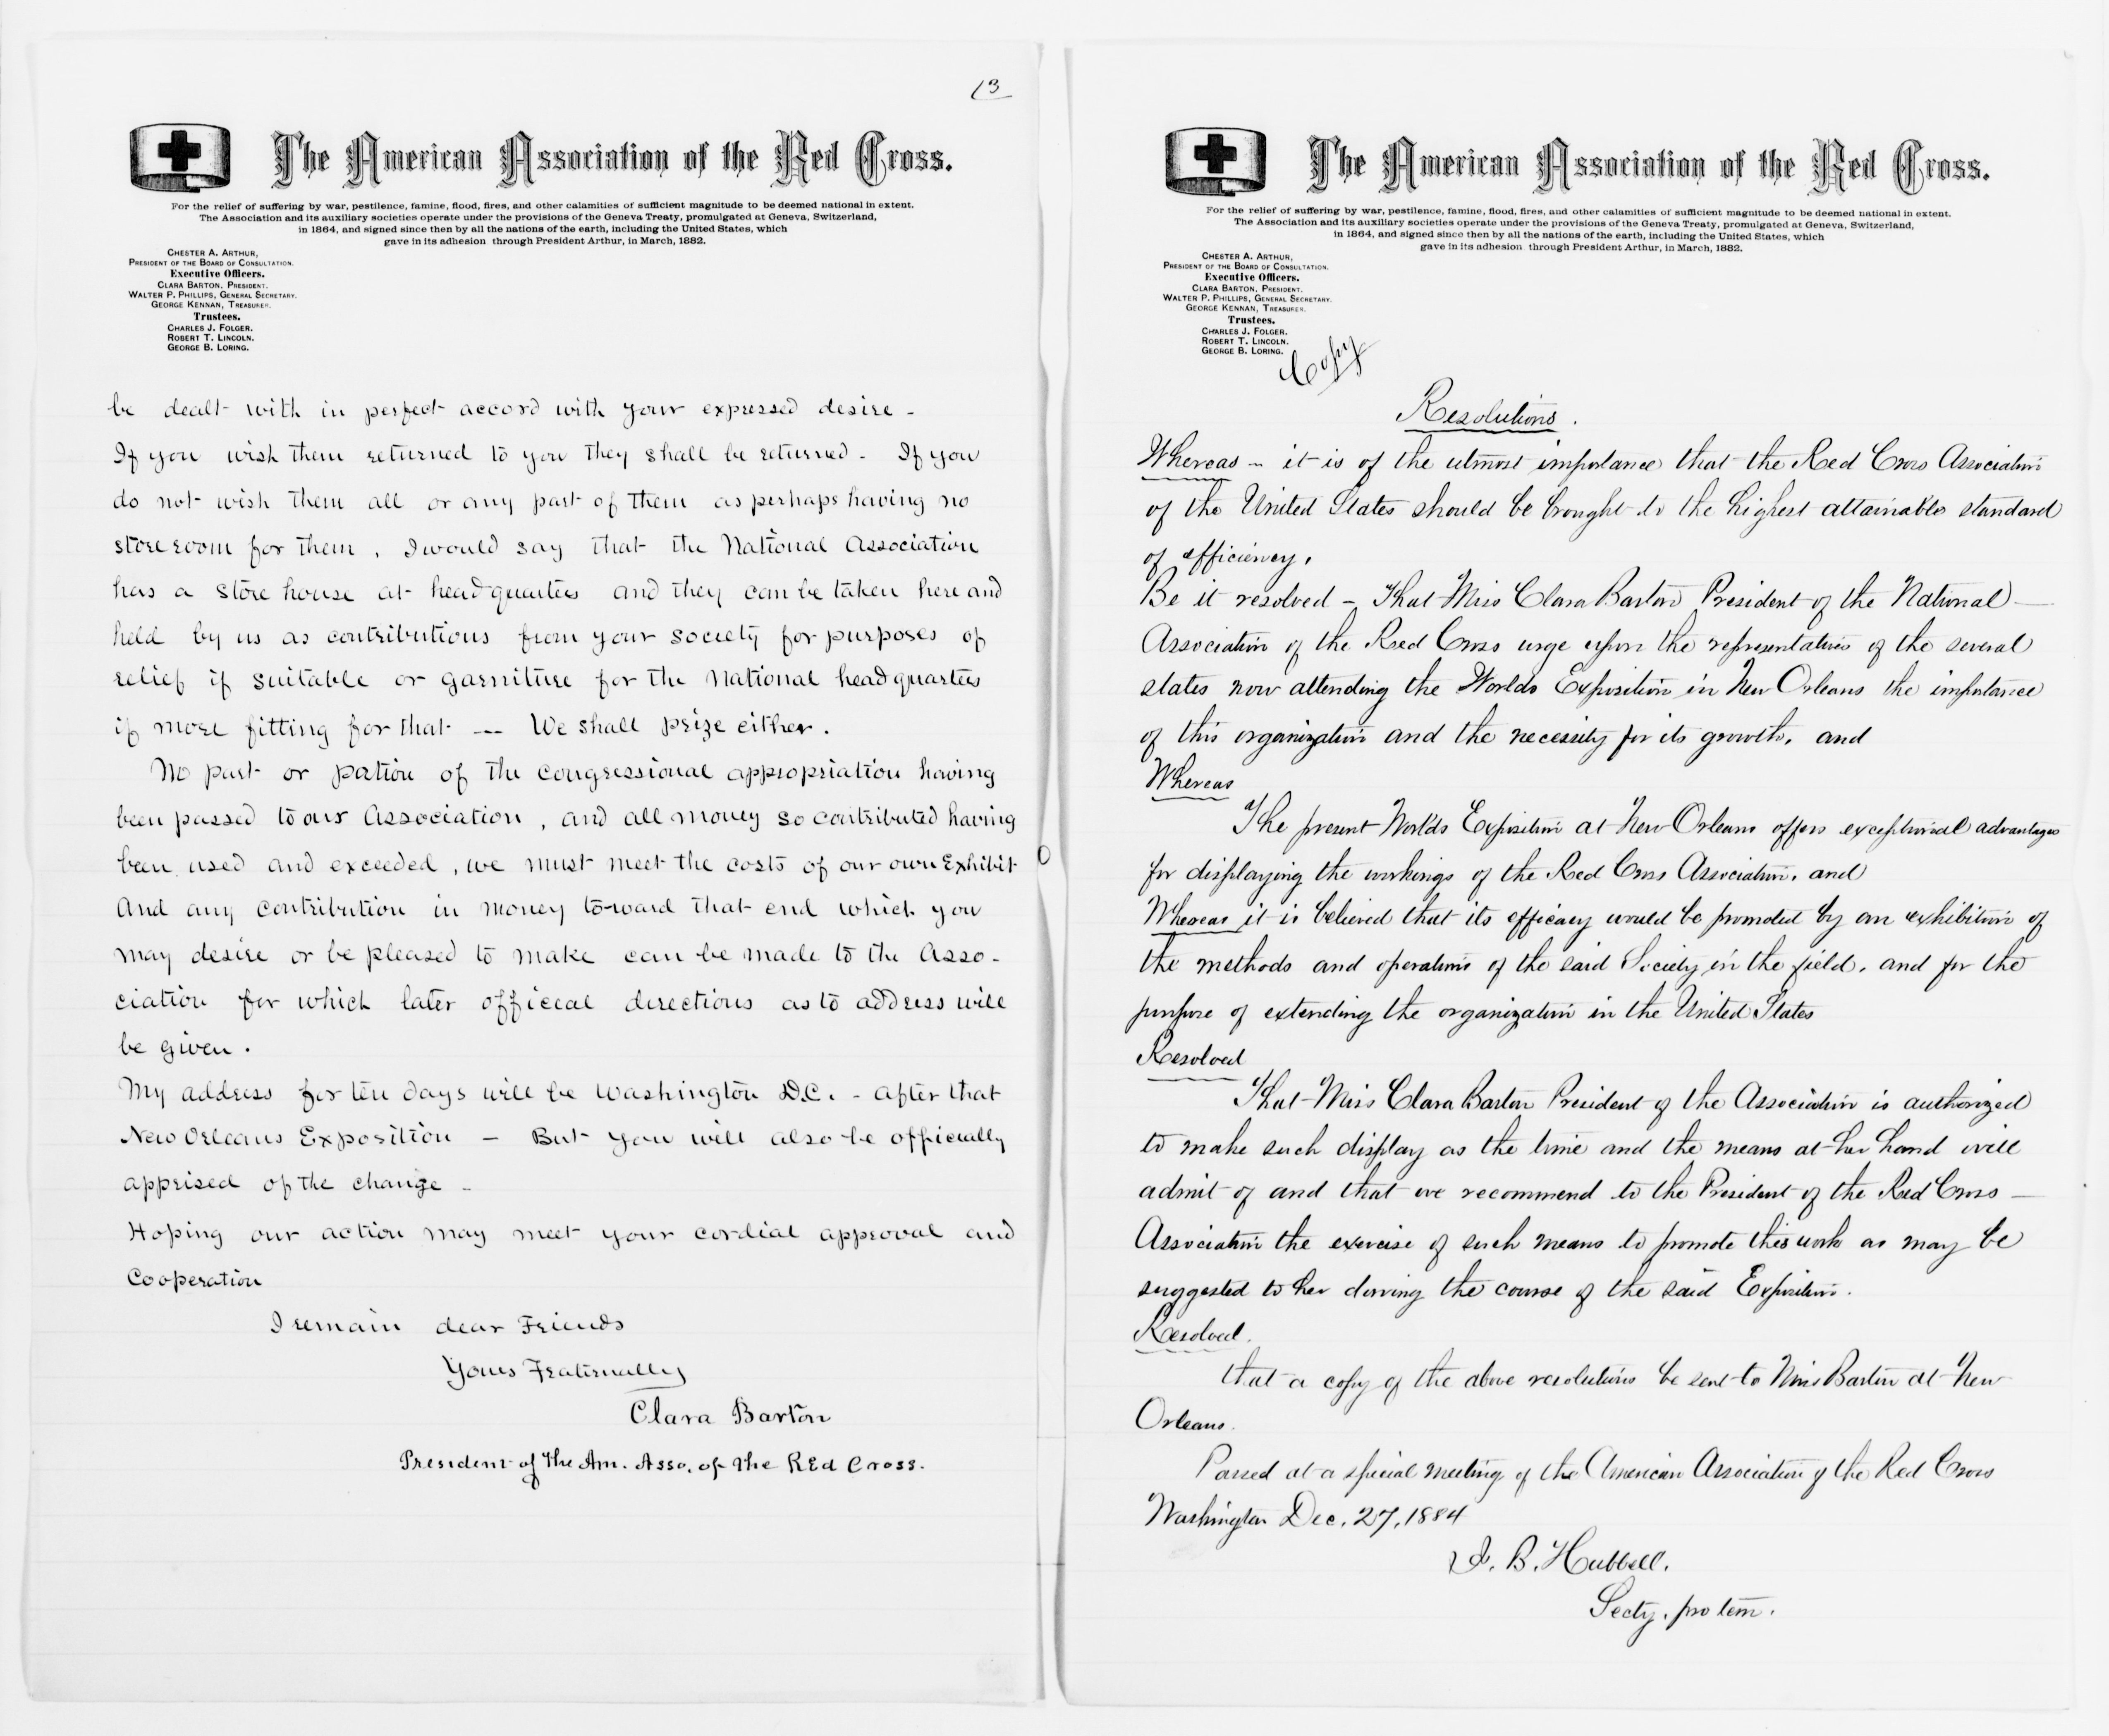 13
The American Association of the Red Cross.
For the relief of suffering by war, pestilence, famine, flood, fires, and other calamities of sufficient magnitude to be deemed national in extent.
The Association and its auxiliary societies operate under the provisions of the Geneva Treaty, promulgated at Geneva, Switzerland,
in 1864, and signed since then by all the nations of the earth, including the United States, which
gave in its adhesion through President Arthur, in March, 1882.
CHESTER A. ARTHUR,
PRESIDENT OF THE BOARD OF CONSULTATION.
Executive Officers.
CLARA BARTON, PRESIDENT.
WALTER P. PHILLIPS, GENERAL SECRETARY.
GEORGE KENNAN, TREASURER.
Trustees.
CHARLES J. FOLGER.
ROBERT T. LINCOLN.
GEORGE B. LORING.
be dealt with in perfect accord with your expressed desire -
If you wish them returned to you they shall be returned - If you
do not wish them all or any part of them as perhaps having no
store room for them, I would say that the National Association
has a store house at headquarters and they can be taken here and
held by us as contributions from your society for purposes of
relief if suitable or garniture for the National headquarters
if more fitting for that --- We shall prize either.
No part or potion of the congressional appropriation having
been passed to our Association, and all money so contributed having
been used and exceeded, we must meet the costs of our own Exhibit
And any contribution in money toward that end which you
may desire or be pleased to make can be made to the Asso-
ciation for which later official directions as to address will
be given.
My address for ten days will be Washington D.C. - after that
New Orleans Exposition - But you will also be officially
apprised of the change -
Hoping our action may meet your cordial approval and
Cooperation
I remain dear Friends
Yours Fraternally
Clara Barton
President of the Am. Asso. of the Red Cross.
The American Association of the Red Cross.
For the relief of suffering by war, pestilence, famine, flood, fires, and other calamities of sufficient magnitude to be deemed national in extent.
The Association and its auxiliary societies operate under the provisions of the Geneva Treaty, promulgated at Geneva, Switzerland,
in 1864, and signed since then by all the nations of the earth, including the United States, which
gave in its adhesion through President Arthur, in March, 1882.
CHESTER A. ARTHUR,
PRESIDENT OF THE BOARD OF CONSULTATION.
Executive Officers.
CLARA BARTON, PRESIDENT.
WALTER P. PHILLIPS, GENERAL SECRETARY.
GEORGE KENNAN, TREASURER.
Trustees.
CHARLES J. FOLGER.
ROBERT T. LINCOLN.
GEORGE B. LORING.
Copy
Resolutions.
Whereas - it is of the utmost importance that the Red Cross Association
of the United States should be brought to the highest attainable standard
of efficiency.
Be it resolved - That Miss Clara Barton President of the National
Association of the Red Cross urge upon the representatives of the several
states now attending the Worlds Exposition in New Orleans the importance
of this organization and the necessity for its growth, and
Whereas
The present Worlds Exposition at New Orleans offers exceptional advantages
for displaying the workings of the Red Cross Association, and
Whereas it is believed that its efficacy would be promoted by an exhibition of
the methods and operations of the said Society in the field, and for the
purpose of extending the organization in the United States
Resolved
That Miss Clara Barton President of the Association is authorized
to make such display as the time and the means at her hand will
admit of and that we recommend to the President of the Red Cross
Association the exercise of such means to promote this work as may be
suggested to her during the course of the said Exposition.
Resolved.
that a copy of the above resolutions be sent to Miss Barton at New
Orleans.
Passed at a special meeting of the American Association of the Red Cross
Washington Dec. 27, 1884
J. B. Hubbell.
Secty. pro tem.